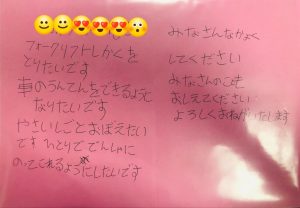 フォークリフトしかくを
とりたいです
車のうんてんをできるように
なりたいです
やさいしごとおぼえたい
です ひとりででんしゃに
のってこれるようにしたいです
みなさんなかよく
してください
みなさんのことを
おしえてください
よろしくおねがいします